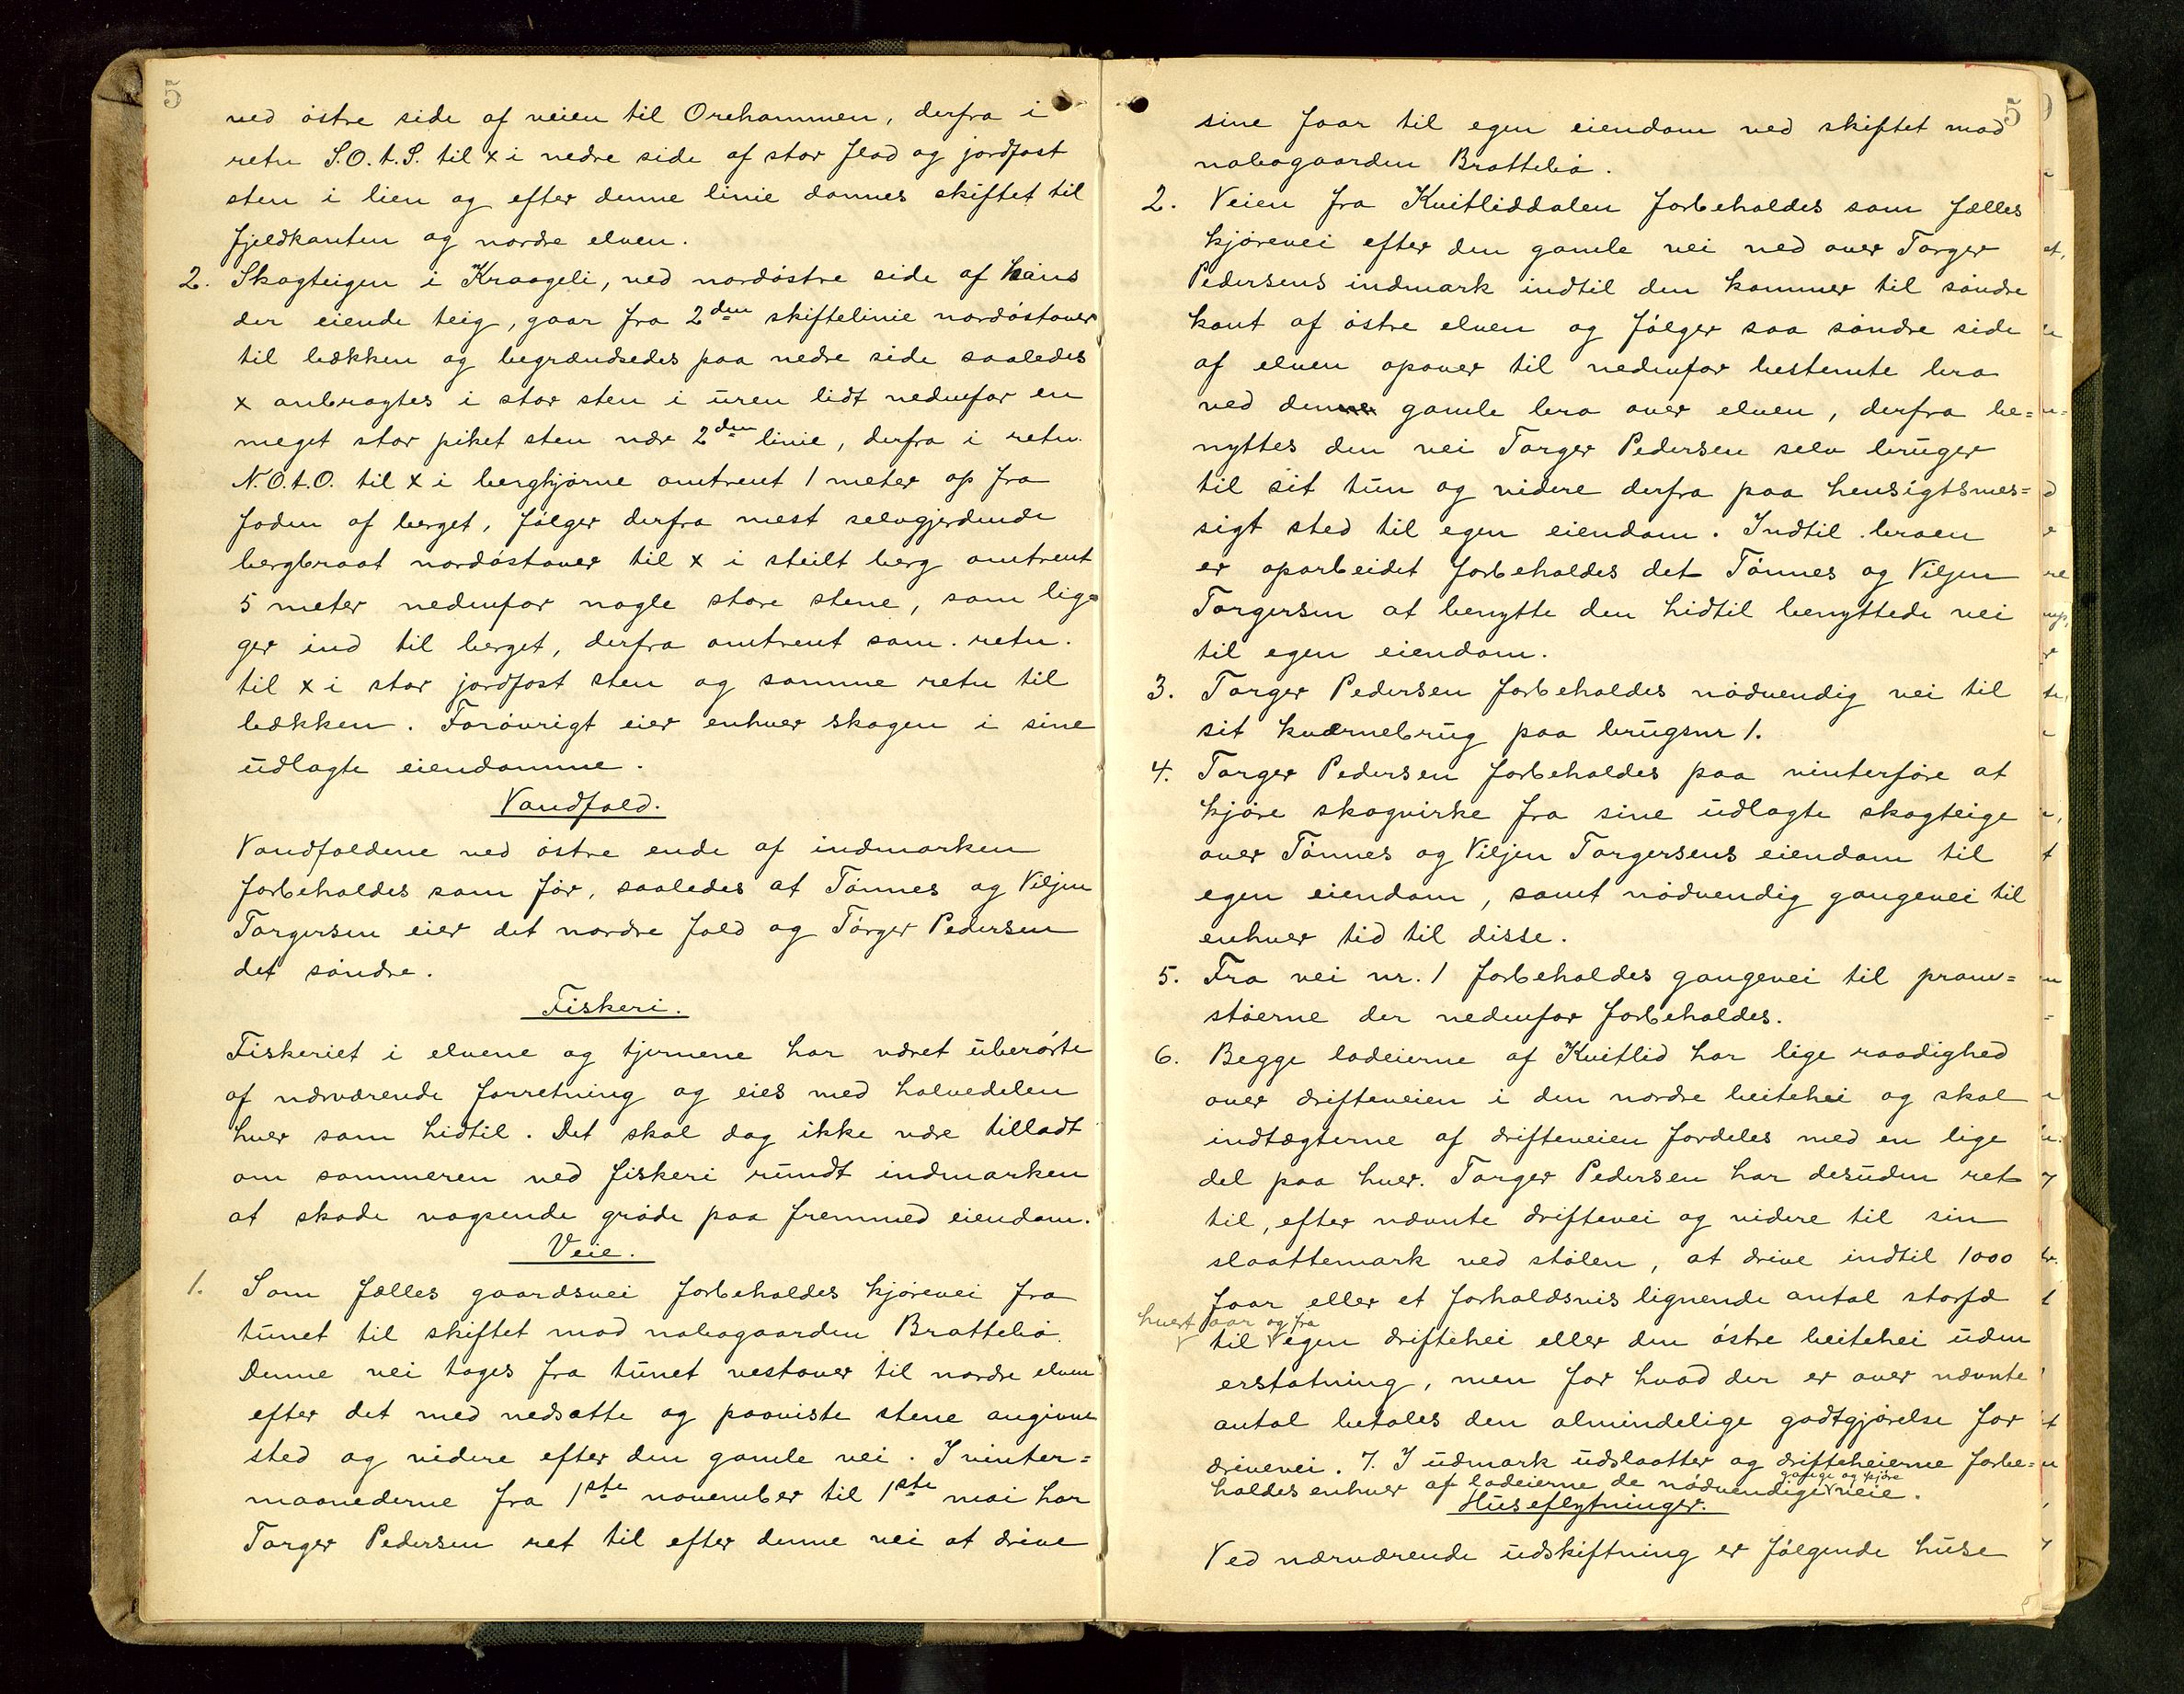 5
ved östre side af veien til Orehammen, derfra i
retn S.O.t.S. til x i nedre side af stor flad og jordfast
sten i lien og efter denne linie dannes skiftet til
fjeldkanten og nordre elven.
2. Skogteigen i Kraageli, ved nordöstre side af hans
der eiende teig, gaar fra 2den skiftelinie nordöstover
til bækken og begrændsedes paa nedre side saaledes
x anbragtes i stor sten i uren lidt nedenfor en
meget stor piket sten nær 2den linie, derfra i retn.
N.O.t.O. til x i berghjörne omtrent 1 meter op fra
foden af berget, fölger derfra mest selvgjerdende
bergbraat nordöstover til x i steilt berg omtrent
5 meter nedenfor nogle store stene, som lig=
ger ind til berget, derfra omtrent sam. retn.
til x i stor jordfast sten og samme retn til
bækken. Forövrigt eier enhver skogen i sine
udlagte eiendomme.
Vandfald.
Vandfaldene ved östre ende af indmarken
forbeholdes som för, saaledes at Tönnes og Viljen
Torgersen eier det nordre fald og Törger Pedersen
det söndre.
Fiskeri.
Fiskeriet i elvene og tjernene har været uberörte
af nærværende forretning og eies med halvedelen
hver som hidtil. Det skal dog ikke være tilladt
om sommeren ved fiskeri rundt indmarken
at skade vogsende gröde paa fremmed eiendom.
Veie.
1. Som fælles gaardsvei forbeholdes kjörevei fra
tunet til skiftet mod nabogaarden Brattebö.
Denne vei tages fra tunet vestover til nordre elven
efter det med nedsatte og paaviste stene angivne
sted og videre efter den gamle vei. I vinter=
maanederne fra 1ste november til 1ste mai har
Torger Pedersen ret til efter denne vei at drive
5
sine faar til egen eiendom ved skiftet mod
nabogaarden Brattebö.
2. Veien fra Kvitliddalen forbeholdes som fælles
kjörevei efter den gamle vei ned over Torger
Pedersens indmark indtil den kommer til söndre
kant af östre elven og fölger saa söndre side
af elven opover til nedenfor bestemte bro
ved den gamle bro over elven, derfra be=
nyttes den vei Torger Pedersen selv bruger
til sit tun og videre derfra paa hensigtsmes=
sigt sted til egen eiendom. Indtil broen
er oparbeidet forbeholdes det Tönnes og Viljen
Torgersen at benytte den hidtil benyttede vei
til egen eiendom.
3. Torger Pedersen forbeholdes nödvendig vei til
sit kværnebrug paa brugsnr 1.
4. Torger Pedersen forbeholdes paa vinterföre at
kjöre skogvirke fra sine udlagte skogteige
over Tönnes og Viljen Torgersens eiendom til
egen eiendom, samt nödvendig gangevei til
enhver tid til disse.
5. Fra vei nr. 1 forbeholdes gangevei til pram=
stöerne der nedenfor forbeholdes.
6. Begge lodeierne af Kvitlid har lige raadighed
over drifteveien i den nordre beitehei og skal
indtægterne af drifteveien fordeles med en lige
del paa hver. Torger Pedersen har desuden ret
til, efter nævnte driftevei og videre til sin
slaattemark ved stölen, at drive indtil 1000
faar eller et forholdsvis lignende antal storfæ
hvert aar og fra
til egen driftehei eller den östre beitehei uden
erstatning, men for hvad der er over nævnte
antal betales den almindelige godtgjörelse for
drivevei. 7. I udmark udslaatter og drifteheierne forbe=
gange og kjöre
holdes enhver af lodeierne de nödvendige veie.
Huseflytninger.
Ved nærværende udskiftning er fölgende huse